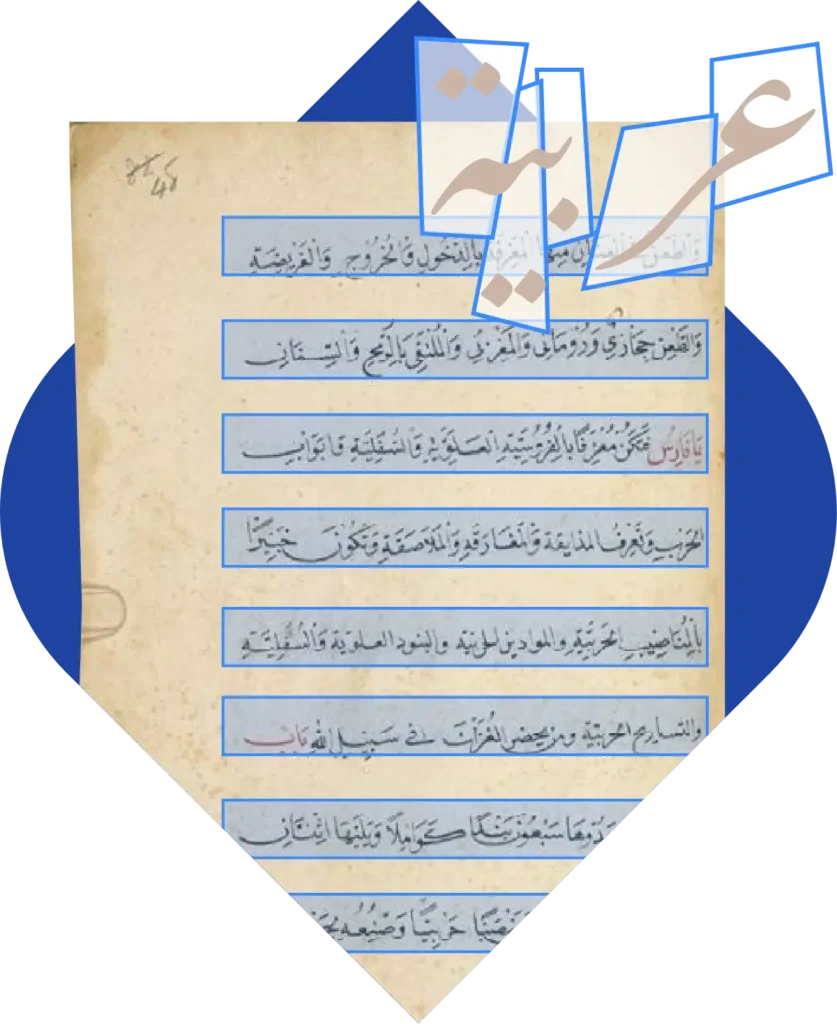 عربية
48
والطعن بالدخول والخروج والعريضة
والطعن حجازي ورُوماني والمغربي والملتقى بالرمح والسنان
يا فارس تحكن مُعرفًا بالفروسية العلوية والسفلية وابواب
الحرب وتعرف المذايقة والمفارقة والملاصقة وتكون خبيرًا
بالمناصيب الحربية والموادين الحربية والبنود العلوية والسفلية
والتساريح الحربية ومن يحضر الغزات في سبيل الله باب
سبعون بندًا كواملًا ويلها اثنان
حربيًا وصنعه